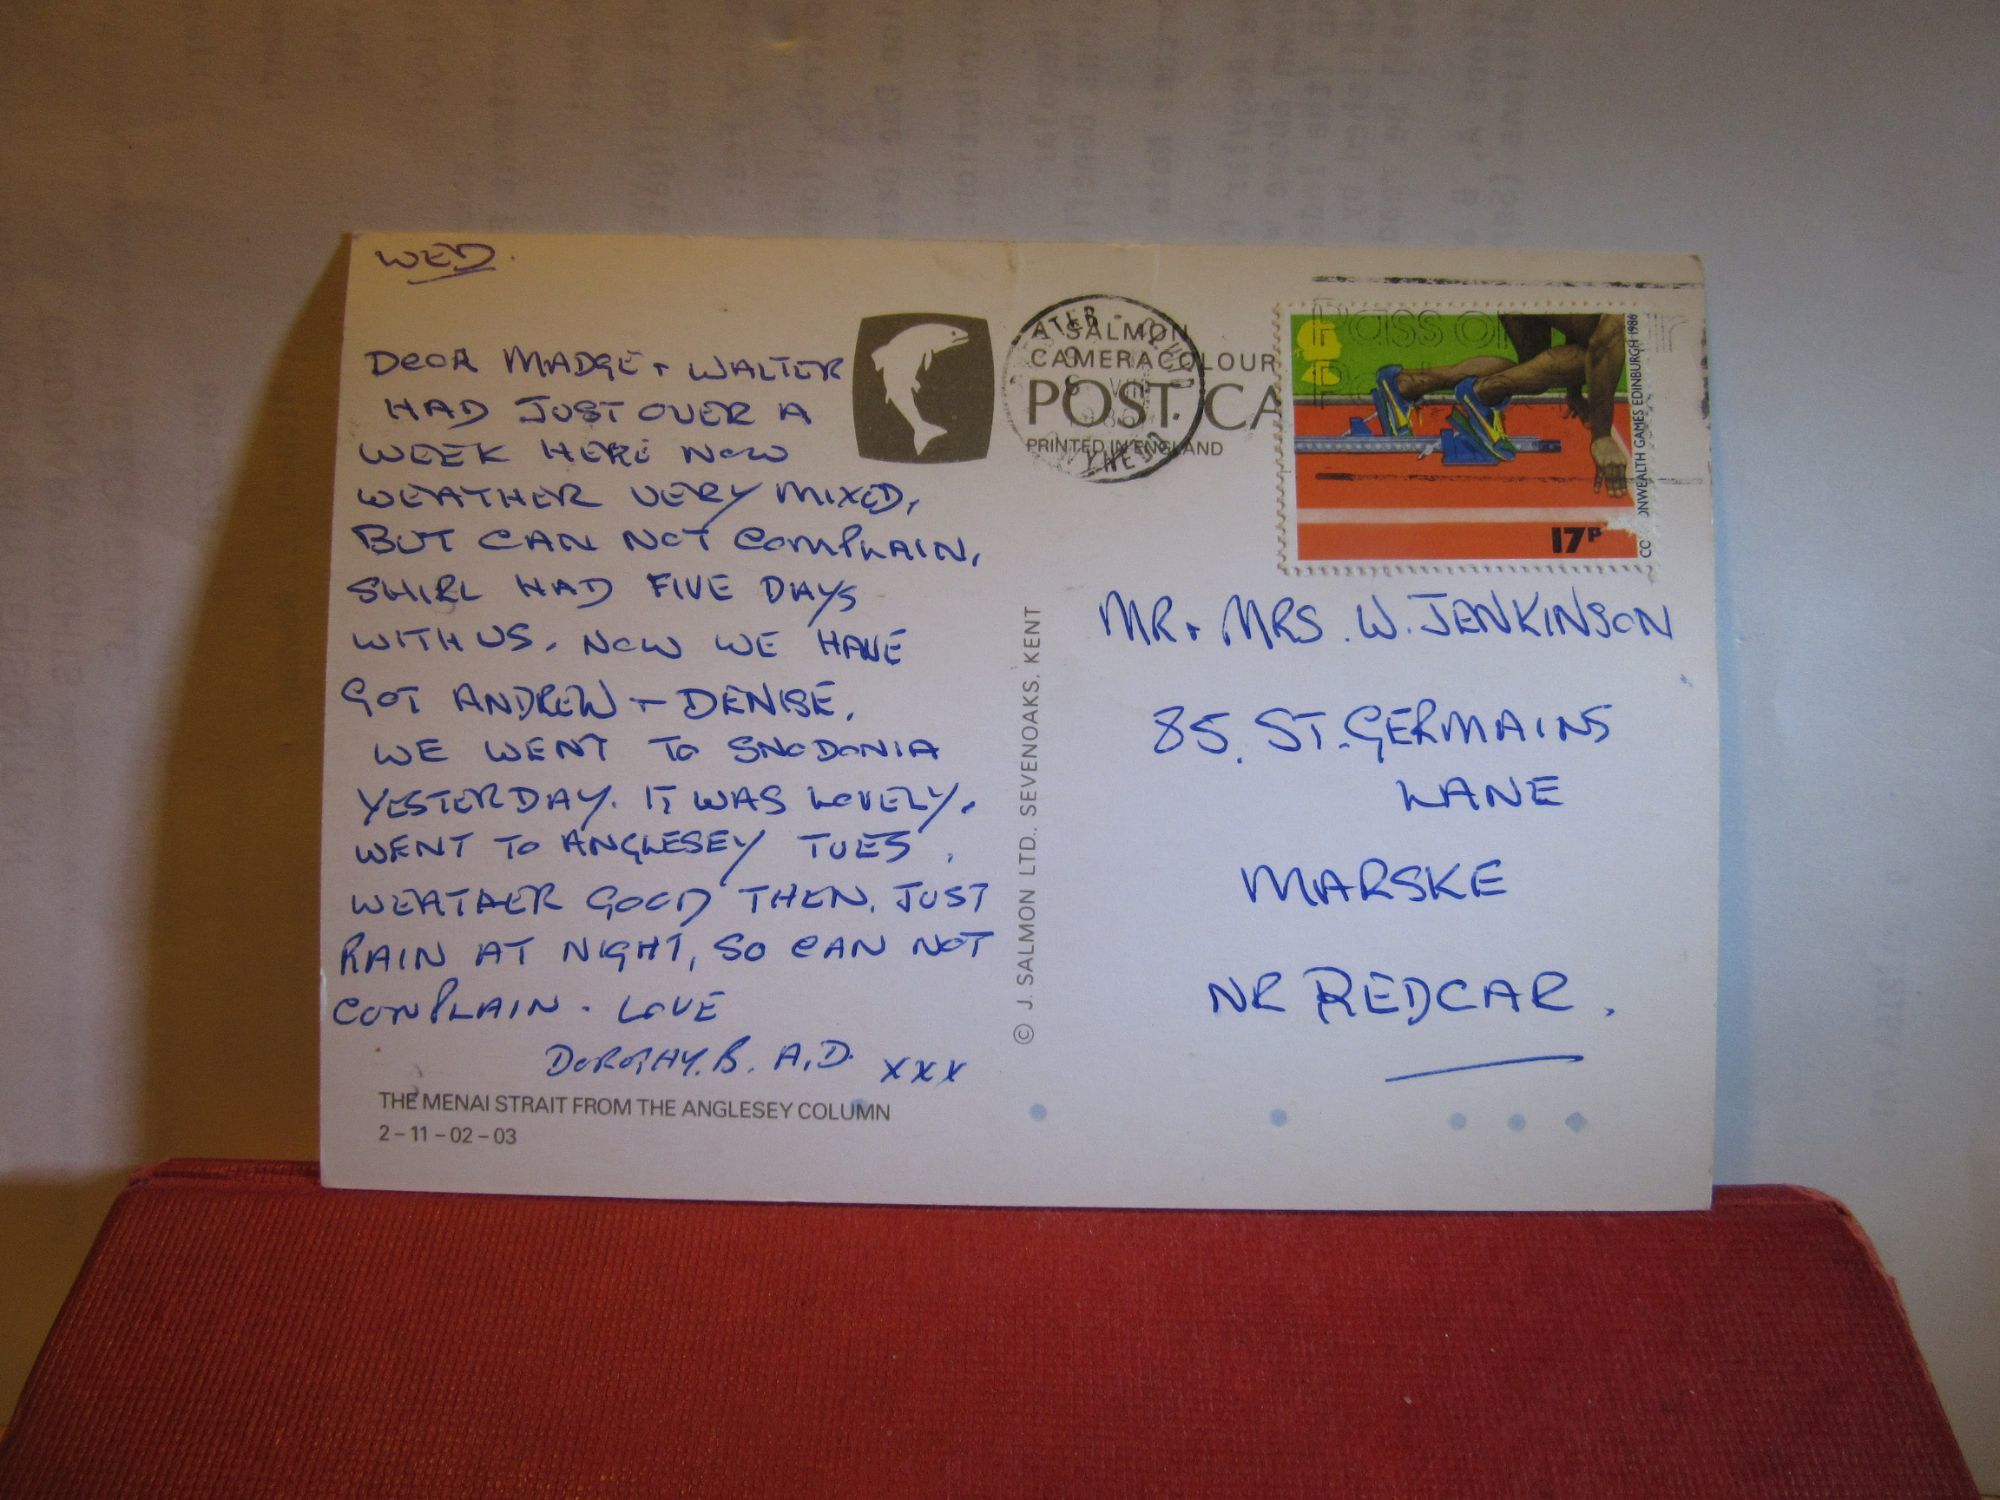 WED.
DEAR MADGE + WALTER
HAD JUST OVER A
WEEK HERE NOW
WEATHER VERY MIXED,
BUT CAN NOT COMPLAIN,
SHIRL HAD FIVE DAYS
WITH US. NOW WE HAVE
GOT ANDREW + DENISE.
WE WENT TO SNODONIA
YESTERDAY. IT WAS LOVELY.
WENT TO ANGLESEY TUES.
WEATHER GOOD THEN. JUST
RAIN AT NIGHT, SO CAN NOT
COMPLAIN. LOVE
DOROTHY. B. A. D. XXX
THE MENAI STRAIT FROM THE ANGLESEY COLUMN
2 – 11 – 02 – 03
A SALMON
CAMERACOLOUR
POST CA
PRINTED IN ENGLAND
© J. SALMON LTD., SEVENOAKS, KENT
Pass on
COMMONWEALTH GAMES EDINBURGH 1986
17P
MR + MRS. W. JENKINSON
85. ST. GERMAINS
LANE
MARSKE
NR REDCAR.